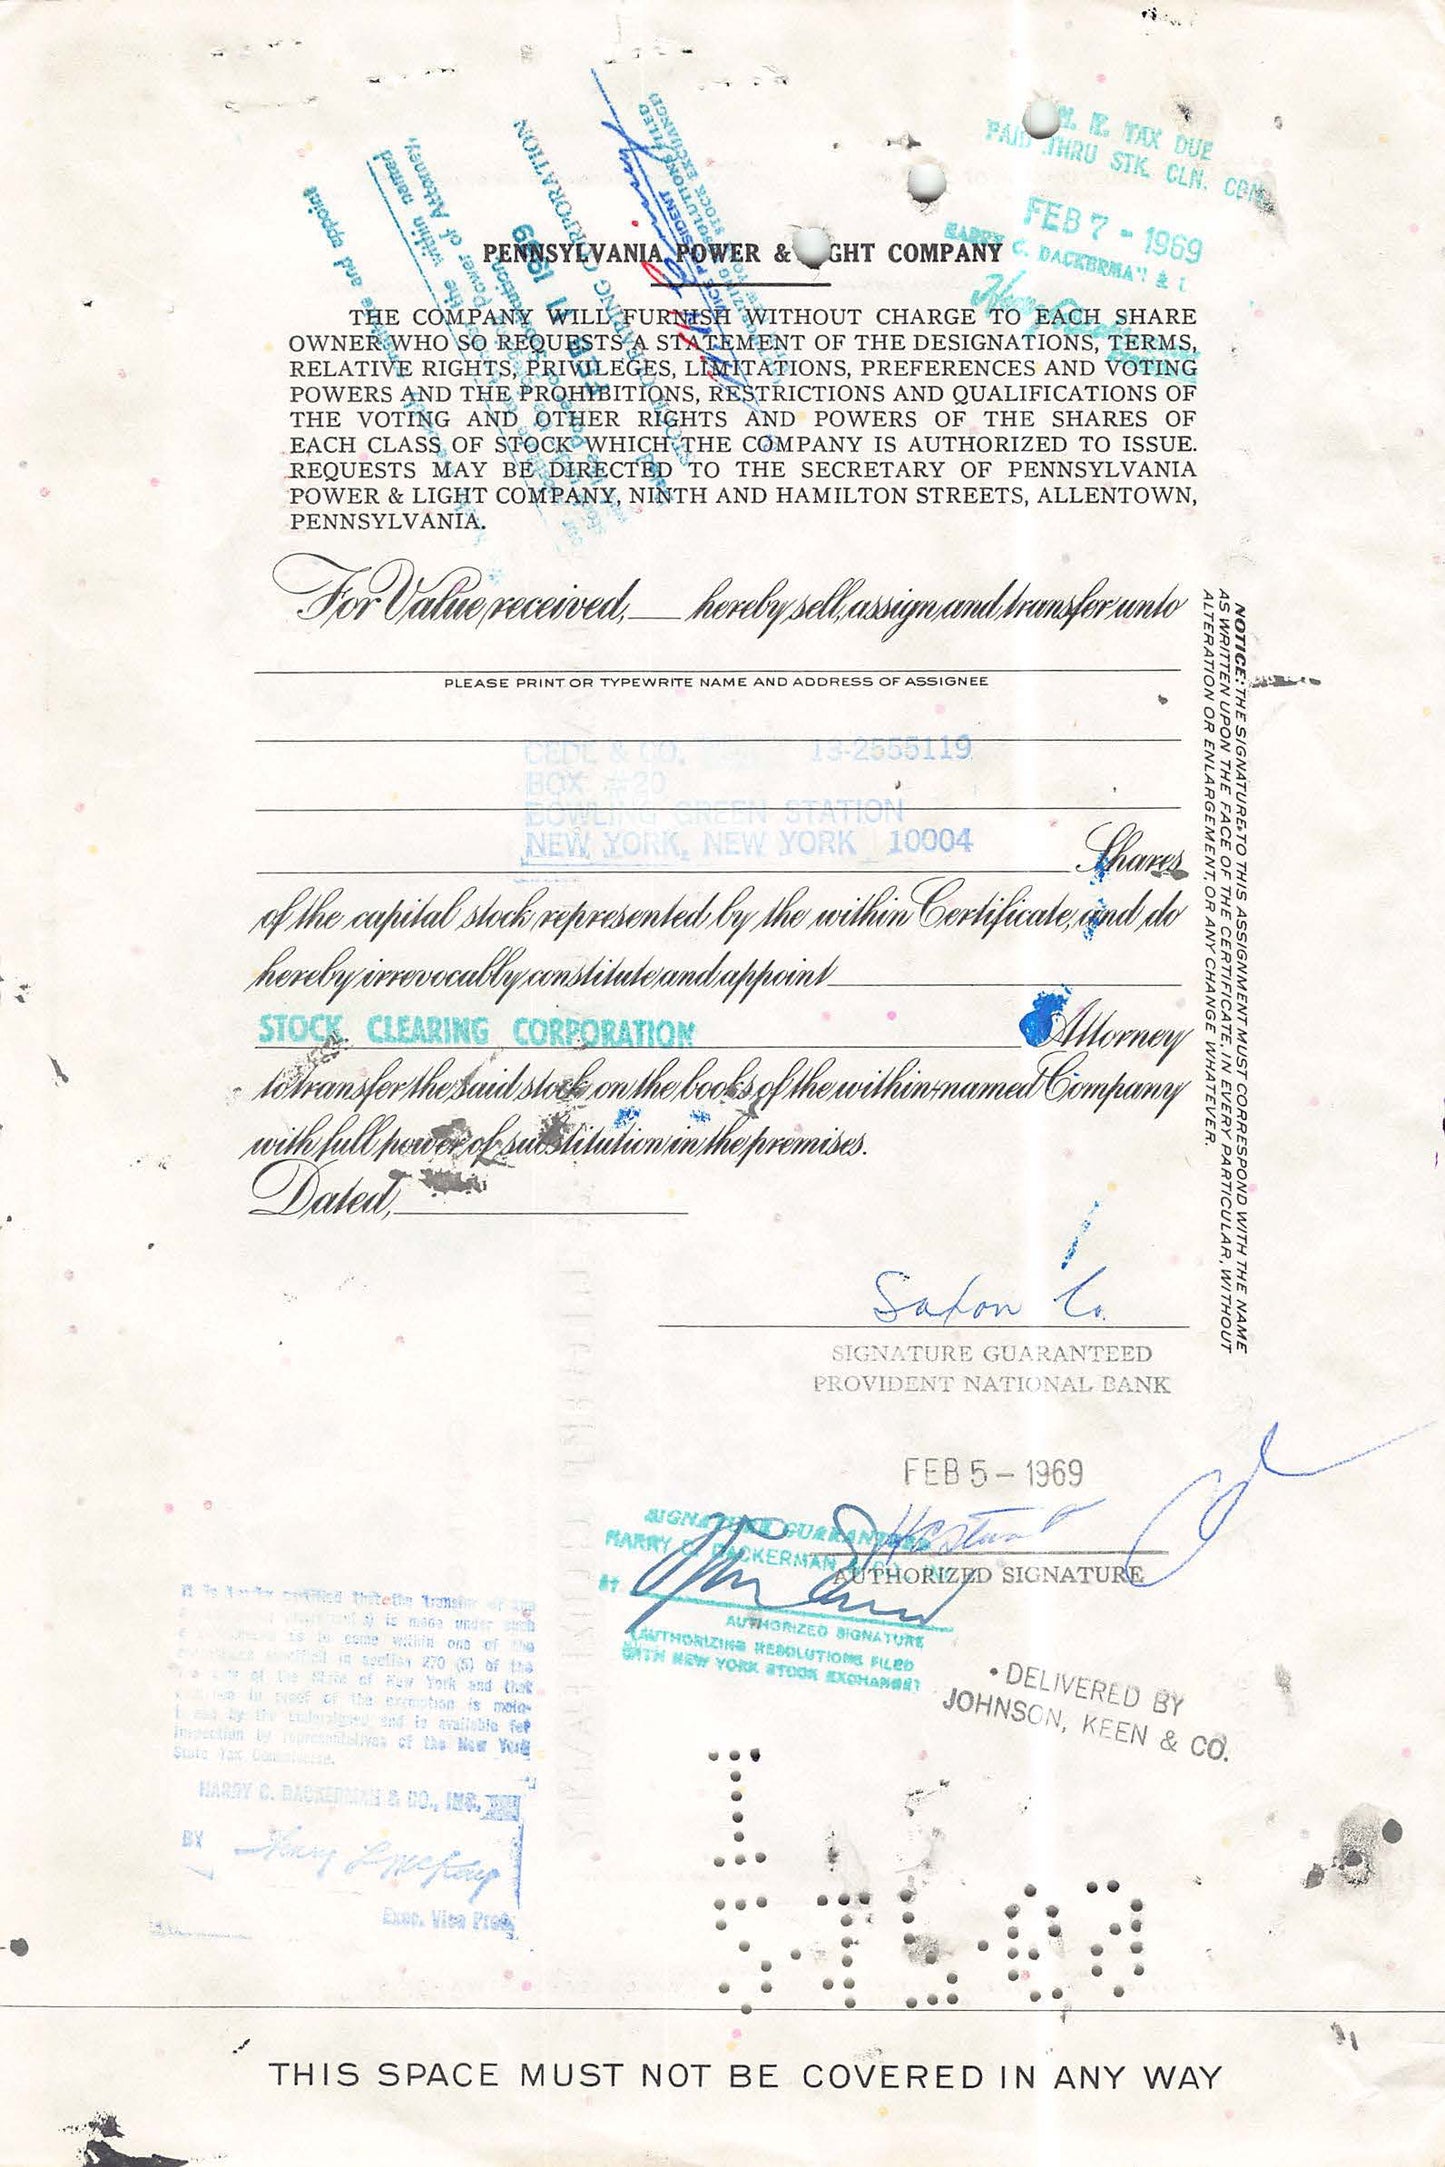 TAX DUE
PAID THRU STK. CLN.
FEB 7 - 1969
PENNSYLVANIA POWER & LIGHT COMPANY
THE COMPANY WILL FURNISH WITHOUT CHARGE TO EACH SHARE
OWNER WHO SO REQUESTS A STATEMENT OF THE DESIGNATIONS, TERMS,
RELATIVE RIGHTS, PRIVILEGES, LIMITATIONS, PREFERENCES AND VOTING
POWERS AND THE PROHIBITIONS, RESTRICTIONS AND QUALIFICATIONS OF
THE VOTING AND OTHER RIGHTS AND POWERS OF THE SHARES OF
EACH CLASS OF STOCK WHICH THE COMPANY IS AUTHORIZED TO ISSUE.
REQUESTS MAY BE DIRECTED TO THE SECRETARY OF PENNSYLVANIA
POWER & LIGHT COMPANY, NINTH AND HAMILTON STREETS, ALLENTOWN,
PENNSYLVANIA.
For Value received, ___ hereby sell, assign and transfer unto
PLEASE PRINT OR TYPEWRITE NAME AND ADDRESS OF ASSIGNEE
CEDE & CO. 13-2555119
BOX #20
BOWLING GREEN STATION
NEW YORK, NEW YORK 10004
Shares
of the capital stock represented by the within Certificate, and do
hereby irrevocably constitute and appoint
STOCK CLEARING CORPORATION Attorney
to transfer the said stock on the books of the within-named Company
with full power of substitution in the premises.
Dated,
NOTICE: THE SIGNATURE TO THIS ASSIGNMENT MUST CORRESPOND WITH THE NAME
AS WRITTEN UPON THE FACE OF THE CERTIFICATE, IN EVERY PARTICULAR, WITHOUT
ALTERATION OR ENLARGEMENT, OR ANY CHANGE WHATEVER.
Saxon Co.
SIGNATURE GUARANTEED
PROVIDENT NATIONAL BANK
FEB 5 - 1969
AUTHORIZED SIGNATURE
SIGNATURE GUARANTEED
HARRY C. DACKERMAN & CO., INC.
BY
AUTHORIZED SIGNATURE
(AUTHORIZING RESOLUTIONS FILED
WITH NEW YORK STOCK EXCHANGE)
DELIVERED BY
JOHNSON, KEEN & CO.
It is hereby certified that the transfer of the
is made under such
as to come within one of the
specified in section 270 (5) of the
of the State of New York and that
in proof of the exemption is main-
by the undersigned and is available for
inspection by representatives of the New York
State Tax Commission.
HARRY C. DACKERMAN & CO., INC.
BY
Exec. Vice Pres.
THIS SPACE MUST NOT BE COVERED IN ANY WAY